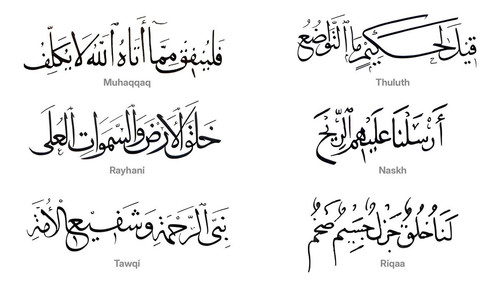 فلينفق مما أتاه الله لا يكلف
Muhaqqaq
قيل لحكيم ما التواضع
Thuluth
خلق الأرض والسموات العلى
Rayhani
أرسلنا عليهم الريح
Naskh
نبي الرحمة وشفيع الأمة
Tawqi
لنا خلق جزل جسيم
Riqaa